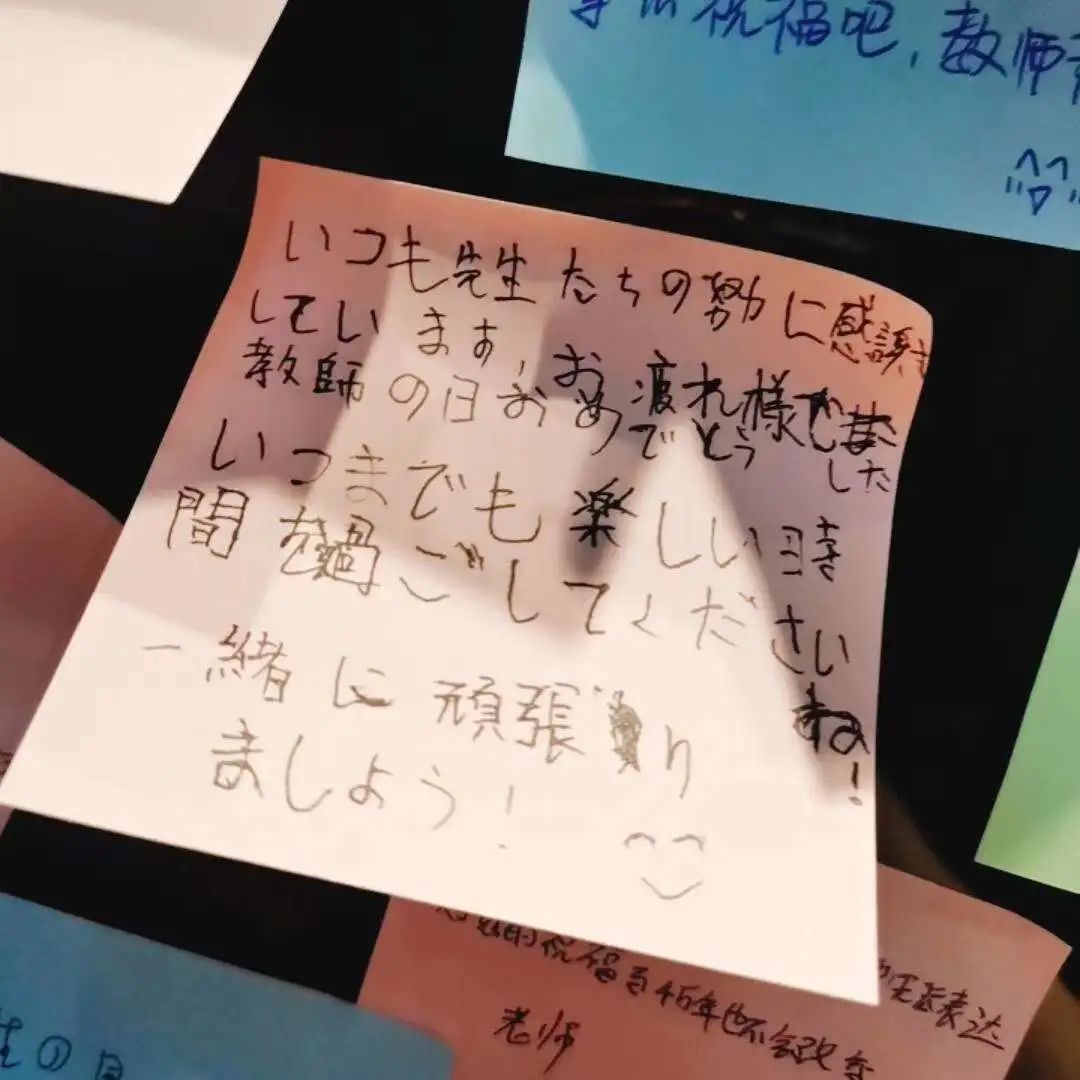 祝福吧,教师
いつも先生たちの努に感謝を
しています,お疲れ様でした
教師の日おめでとう
いつまでも楽しい時
間を過ごしてください
ね!
一緒に頑張り
ましょう!
的祝福
年也不会改变
表达
老师
生の日